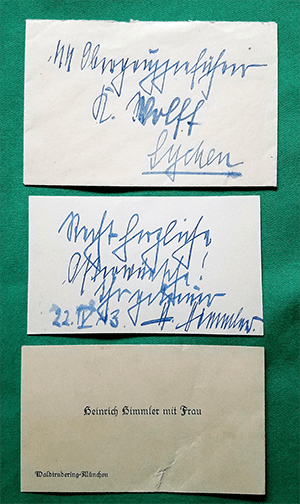 SS Obergruppenführer
K. Wolff
Lychen
Recht herzliche
Osterwünsche!
Ihr getreuer
22.IV 43. H. Himmler.
Heinrich Himmler mit Frau
Waldtrudering-München